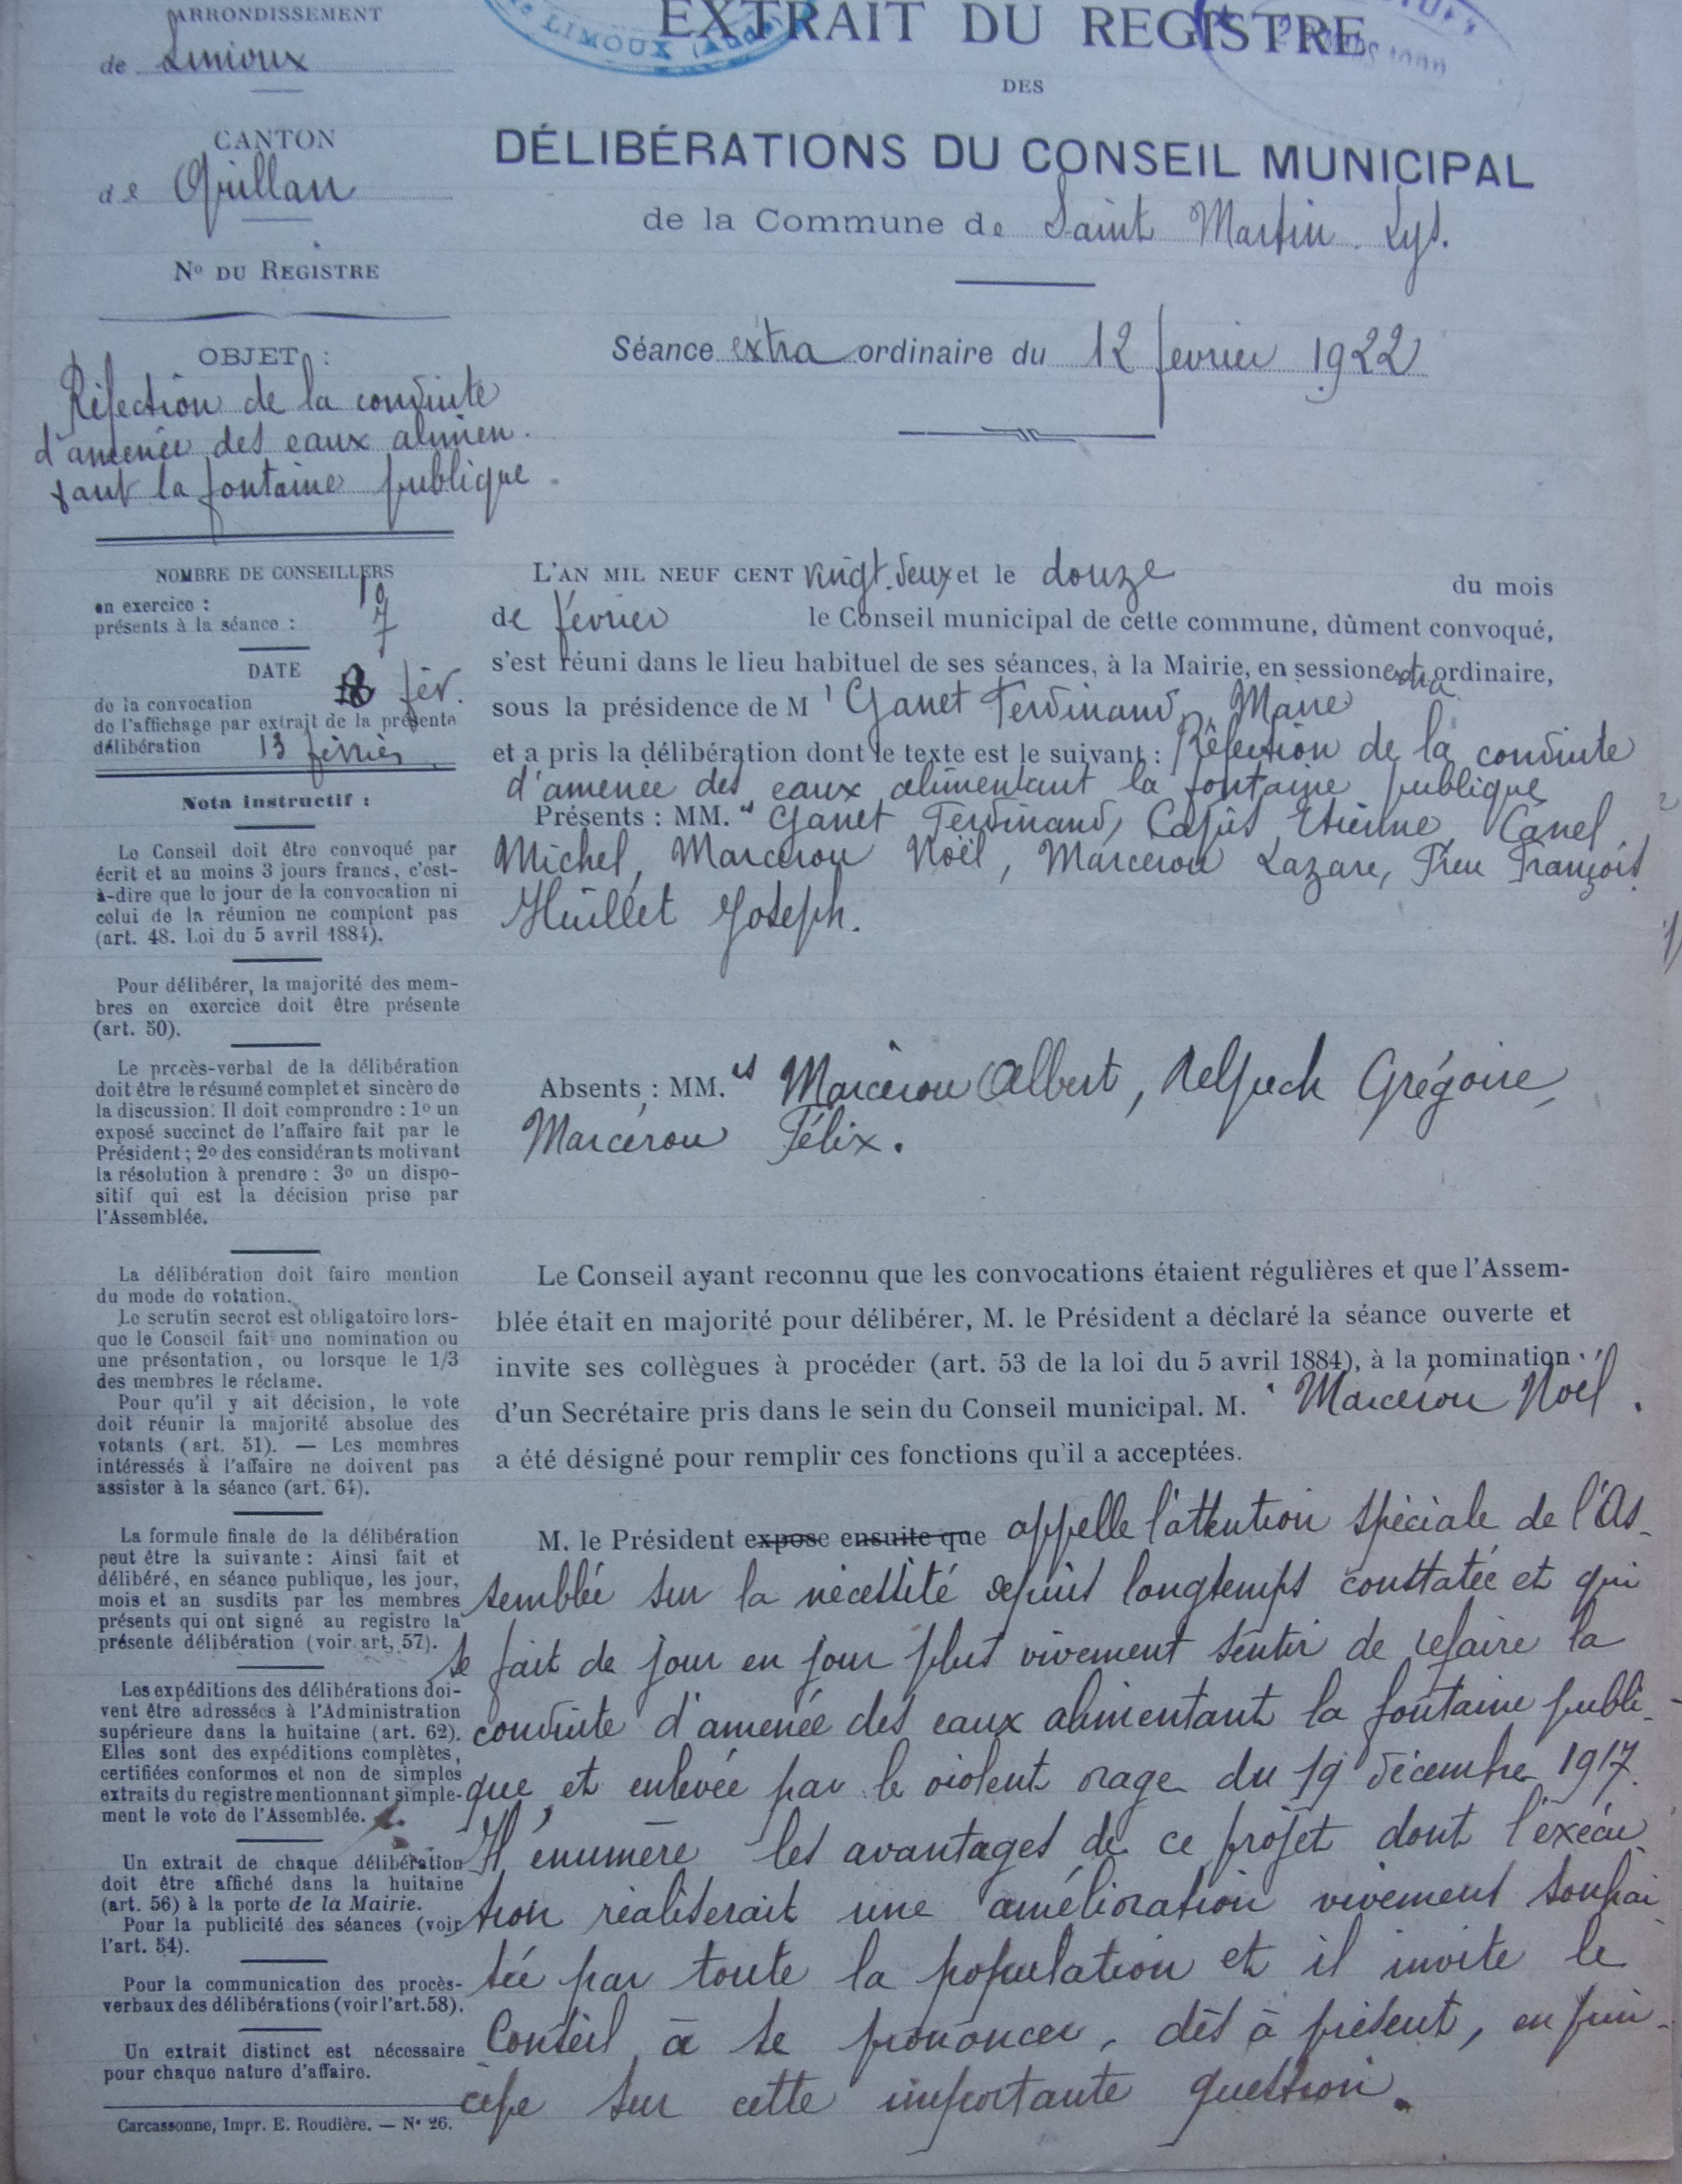 ARRONDISSEMENT
de Limoux
CANTON
de Quillan
No DU REGISTRE
OBJET :
Réfection de la conduite
d'amenée des eaux alimen-
tant la fontaine publique.
NOMBRE DE CONSEILLERS
en exercice : 10
présents à la séance : 7
DATE
de la convocation 8 fév.
de l'affichage par extrait de la présente
délibération 13 février
Nota instructif :
Le Conseil doit être convoqué par
écrit et au moins 3 jours francs, c'est-
à-dire que le jour de la convocation ni
celui de la réunion ne comptent pas
(art. 48. Loi du 5 avril 1884).
Pour délibérer, la majorité des mem-
bres en exercice doit être présente
(art. 50).
Le procès-verbal de la délibération
doit être le résumé complet et sincère de
la discussion. Il doit comprendre : 1o un
exposé succinct de l'affaire fait par le
Président ; 2o des considérants motivant
la résolution à prendre : 3o un dispo-
sitif qui est la décision prise par
l'Assemblée.
La délibération doit faire mention
du mode de votation.
Le scrutin secret est obligatoire lors-
que le Conseil fait une nomination ou
une présentation, ou lorsque le 1/3
des membres le réclame.
Pour qu'il y ait décision, le vote
doit réunir la majorité absolue des
votants (art. 51). — Les membres
intéressés à l'affaire ne doivent pas
assister à la séance (art. 64).
La formule finale de la délibération
peut être la suivante : Ainsi fait et
délibéré, en séance publique, les jour,
mois et an susdits par les membres
présents qui ont signé au registre la
présente délibération (voir art, 57).
Les expéditions des délibérations doi-
vent être adressées à l'Administration
supérieure dans la huitaine (art. 62).
Elles sont des expéditions complètes,
certifiées conformes et non de simples
extraits du registre mentionnant simple-
ment le vote de l'Assemblée.
Un extrait de chaque délibération
doit être affiché dans la huitaine
(art. 56) à la porte de la Mairie.
Pour la publicité des séances (voir
l'art. 54).
Pour la communication des procès-
verbaux des délibérations (voir l'art. 58).
Un extrait distinct est nécessaire
pour chaque nature d'affaire.
Carcassonne, Impr. E. Roudière. — No 26.
LIMOUX (Aude)
EXTRAIT DU REGISTRE
DES
DÉLIBÉRATIONS DU CONSEIL MUNICIPAL
de la Commune de Saint Martin Lys.
Séance extra ordinaire du 12 février 1922
L'AN MIL NEUF CENT vingt-deux et le douze du mois
de février le Conseil municipal de cette commune, dûment convoqué,
s'est réuni dans le lieu habituel de ses séances, à la Mairie, en session extra ordinaire,
sous la présidence de Mr Ganet Ferdinand, Maire
et a pris la délibération dont le texte est le suivant : Réfection de la conduite
d'amenée des eaux alimentant la fontaine publique
Présents : MM.rs Ganet Ferdinand, Étienne, Canel
Michel, Marcerou Noël, Marcerou Lazare, François
Huillet Joseph.
Absents : MM.rs Marcerou Albert, Delpech Grégoire,
Marcerou Félix.
Le Conseil ayant reconnu que les convocations étaient régulières et que l'Assem-
blée était en majorité pour délibérer, M. le Président a déclaré la séance ouverte et
invite ses collègues à procéder (art. 53 de la loi du 5 avril 1884), à la nomination
d'un Secrétaire pris dans le sein du Conseil municipal. M. Marcerou Noël.
a été désigné pour remplir ces fonctions qu'il a acceptées.
M. le Président expose ensuite que appelle l'attention spéciale de l'As-
semblée sur la nécessité depuis longtemps constatée et qui
se fait de jour en jour plus vivement sentir de refaire la
conduite d'amenée des eaux alimentant la fontaine publi-
que et enlevée par le violent orage du 19 décembre 1917.
Il énumère les avantages de ce projet dont l'exécu-
tion réaliserait une amélioration vivement souhai-
tée par toute la population et il invite le
Conseil à se prononcer, dès à présent, en prin-
cipe sur cette importante question.